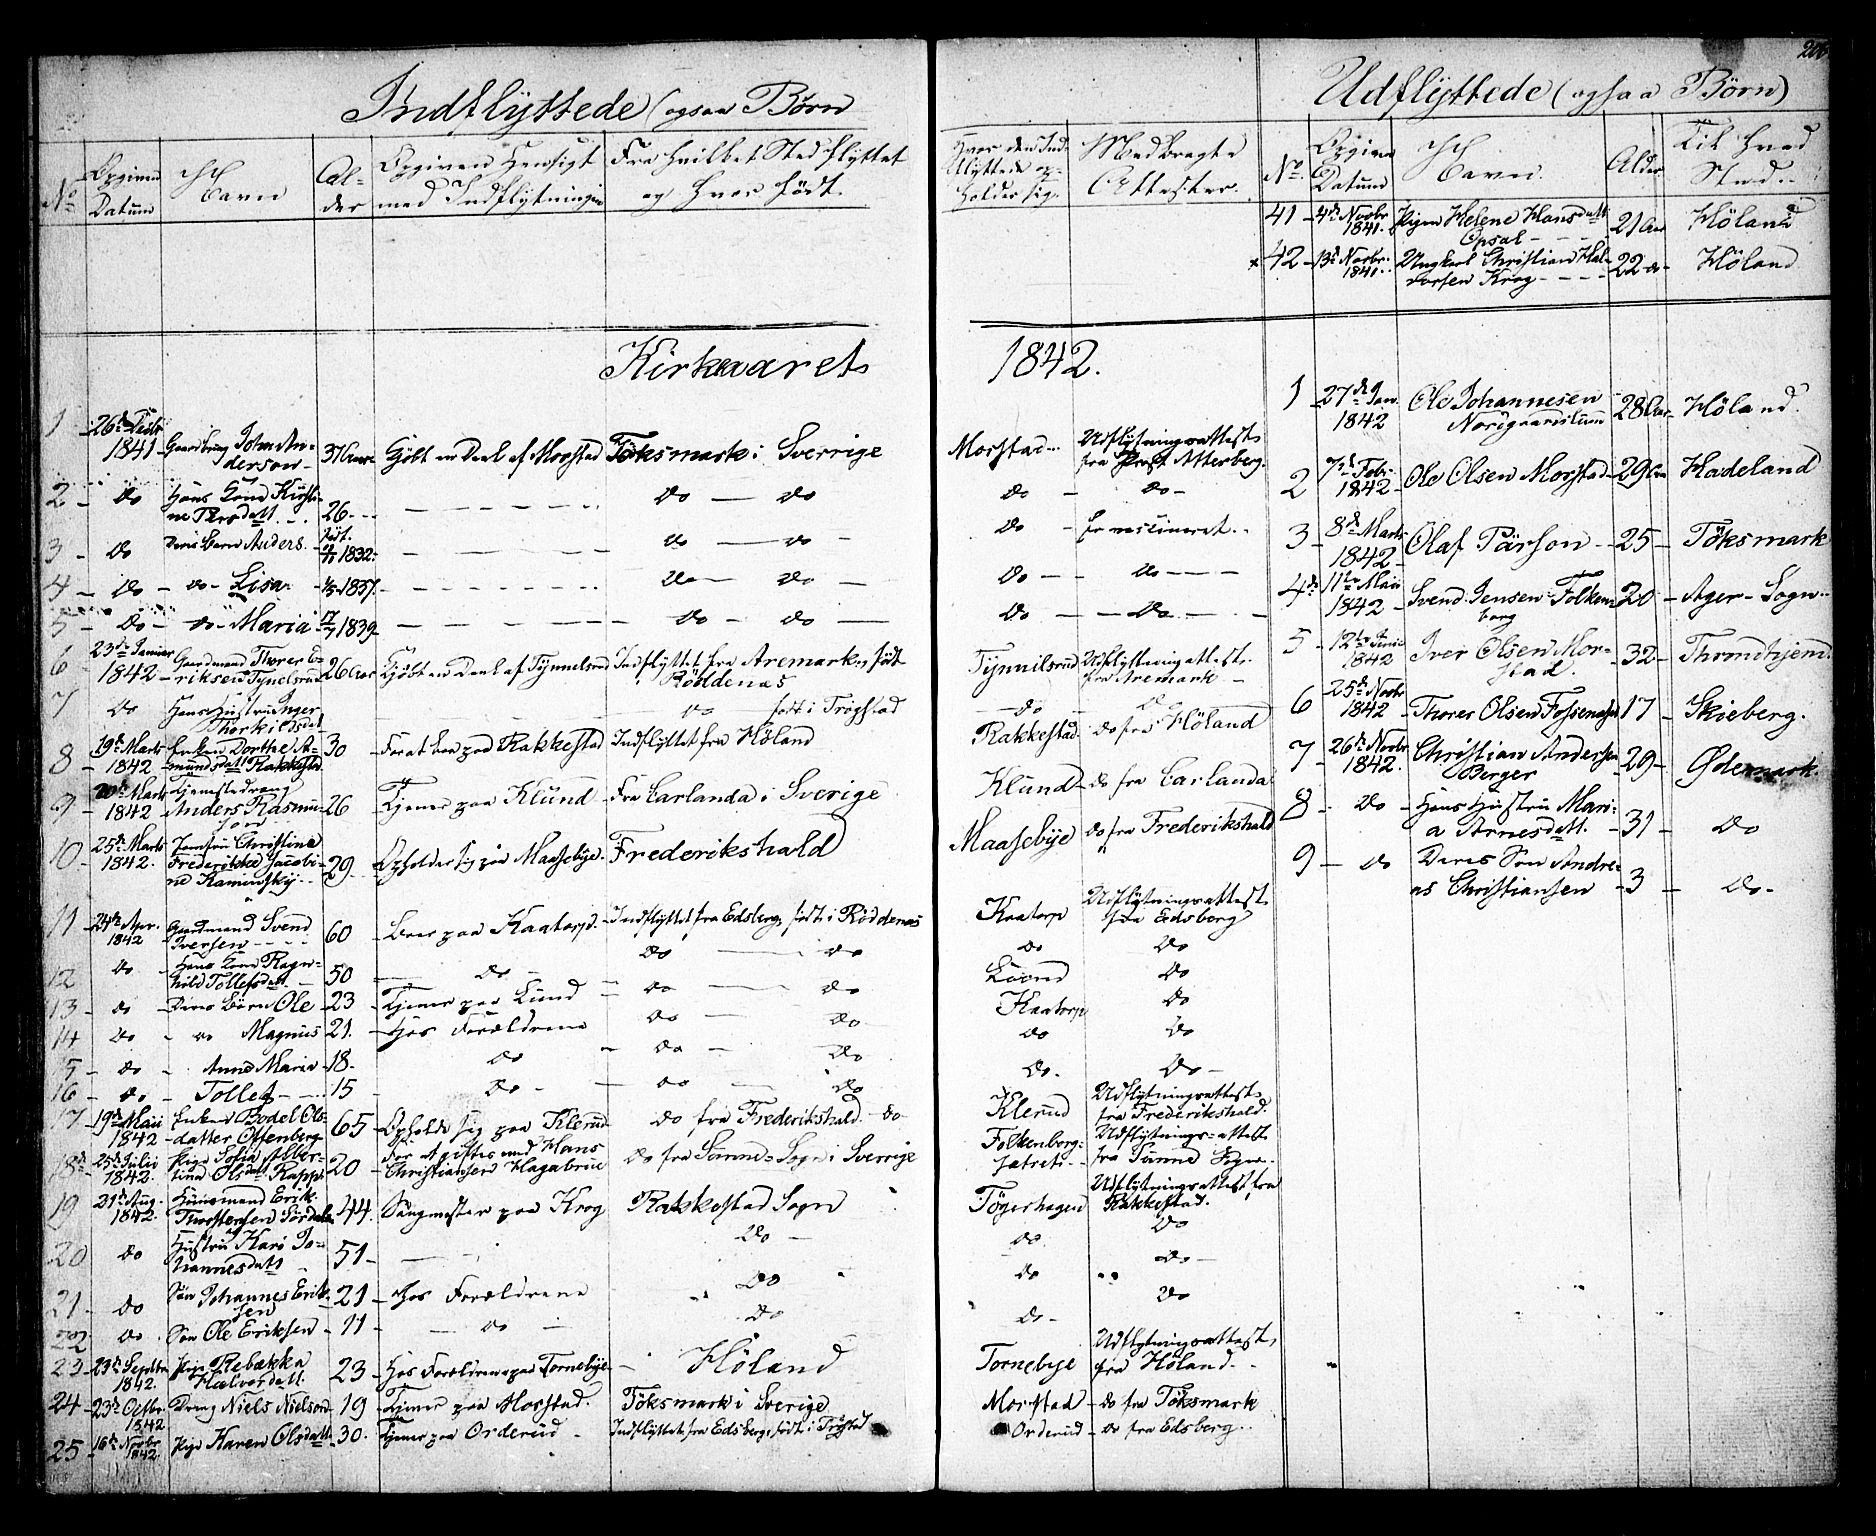 206
Indflyttede (ogsaa Børn
No
Opgiven Datum
Navn
Alder
Opgiven Hensigt med Indflytningen
Fra hvilket Sted flyttet og hvor født.
Hvor den Indflyttede opholder sig.
Medbragte Attester.
Udflyttede (ogsaa Børn)
No.
Opgiven Datum
Navn.
Alder
Til hvad Sted.
41 - 4de Novbr 1841. Pigen Helene Hansdatt Opsal - 21 Aar Höland
42 - 13de Novbr. 1841. Ungkarl Christian Halvorsen Krog - 22 do - Höland
Kirkeaaret 1842.
1 26de Febr 1841 - Gaardbrug John Anderson - 37 Aar - Kjöbt en Deel af Morstad Töksmark i Sverrige Morstad - Udflytningsattest fra Prost Atterberg.
2 - do Hans Kone Kirstine Persdatt - 26 - do - do do - do -
3 - do Deres Børn Anders - født 1832 - do - do - do - Er vaccineret.
4 - do - do - Lisa 1837 - do - do - do - do -
5 - do - do - Maria - 1839 - do - do do - do -
6 23de Januar 1842 - Gaardmand Thorer Eriksen Tynelsrud 26 Aar Kjöbt en Deel af Tynnelsrud Indflyttet fra Aremark, født Röddenæs Tynnilsrud Udflytningsattest fra Aremark -
7 do Hans Hustru Inger Thorkildsdatt - do født i Trögstad - do - do
8 - 19de Marts 1842 - Enken Dorthe Amundsdatt Rakkestad 30 - Foraeboe paa Rakkestad Indflyttet fra Höland Rakkestad - do fra Höland
9 - 20de Marts 1842 Tjenestedreng Anders Rasmusson - 26 - Tjener paa Klund - Fra Carlanda i Sverige Klund - do fra Carlanda
10 - 25de Marts 1842. Jomfru Christine Frederikke Jacobine Kaminsky - 29 - Opholder sig paa Maasebye - Frederikshald Maasebye do fra Frederikshald
11 - 24de Apr. 1842 Gaardmand Svend Iversen - 60 - Boer paa Kaatorp - Indflyttet fra Edsberg, født i Röddenæs Kaatorp Udflytningsattest fra Edsberg
12 do - Hans Kone Ragnhild Tollefsdatt. - 50 - do - do - do do do
13 - do - Deres Børn Ole - 23 - Tjener paa Lund - do - do Lund do
14 - do - do Magnus 21. - Hos Forældrene do - do Kaatorp do
15 - do - Anne Maria - 18 - do - do - do do do
16 - do - Tollef - 15 do - do - do do - do -
17 - 19de Maii 1842 Enken Bodel Olsdatter Offenberg - 65 - Opholde sig paa Klerud do fra Frederikshald - do Klerud Udflytningsattest fra Frederikshald.
18 - 25de Julii 1842. Pige Sofia Albertina Olsdatt Rapp - 20 For at giftes med Hans Christiansen Hagabrue do fra Sunne Sogn i Sverrige Folkenborg Udflytnings-attest fra Sunne Sogn.
19 21de Aug. 1842. Huusmand Erik Thorstensen Sördalen 44. Saugmester paa Krog Rakkestad Sogn Töyerhagen Udflytningsattest fra Rakkestad.
20 do Hustru Kari Johannesdatt - 51 - do - do do
21 - do Søn Johannes Eriksen - 21 - Hos Forældrene do do do -
22 do Søn Ole Eriksen - 11 - do - do do - do
23 - 23de Septbr 1842. Pige Rebækka Halvorsdatt. 23 - Hos Forældrene paa Tornebye - Höland Tornebye Udflytningsattest fra Höland -
24 - 23de Octbr. 1842 Dreng Niels Nielsen - 19 - Tjener paa Morstad. Töksmark i Sverige Morstad - do fra Töksmark
25 - 16de Novbr 1842. Pige Karen Olsdatt - 30. Tjener paa Orderud - Indflyttet fra Edsberg, født i Trögstad Orderud - do fra Edsberg.
1 27de Jan. 1842 Ole Johannesen Nordgaardstuen 28 Aar - Höland.
2 7de Febr. 1842 - Ole Olsen Morstad - 29 Aar - Hadeland
3 - 8de Marts 1842 - Olaf Pärson - 25 - Töksmark
4 11te Maii 1842 - Svend Jensen Folkenborg 20 - Ager-Sogn
5 - 12te Junii 1842 Iver Olsen Morstad. - 32 - Throndhjem.
6 25de Novbr 1842 - Thorer Olsen Fossenes 17 - Skieberg.
7 - 26de Novbr 1842. Christian Andersen Berger - 29 - Ødemark.
8 - do - Hans Hustru Maria Arnesdatt. - 31 - do
9 - do Deres Søn Andreas Christiansen - 3 - do -